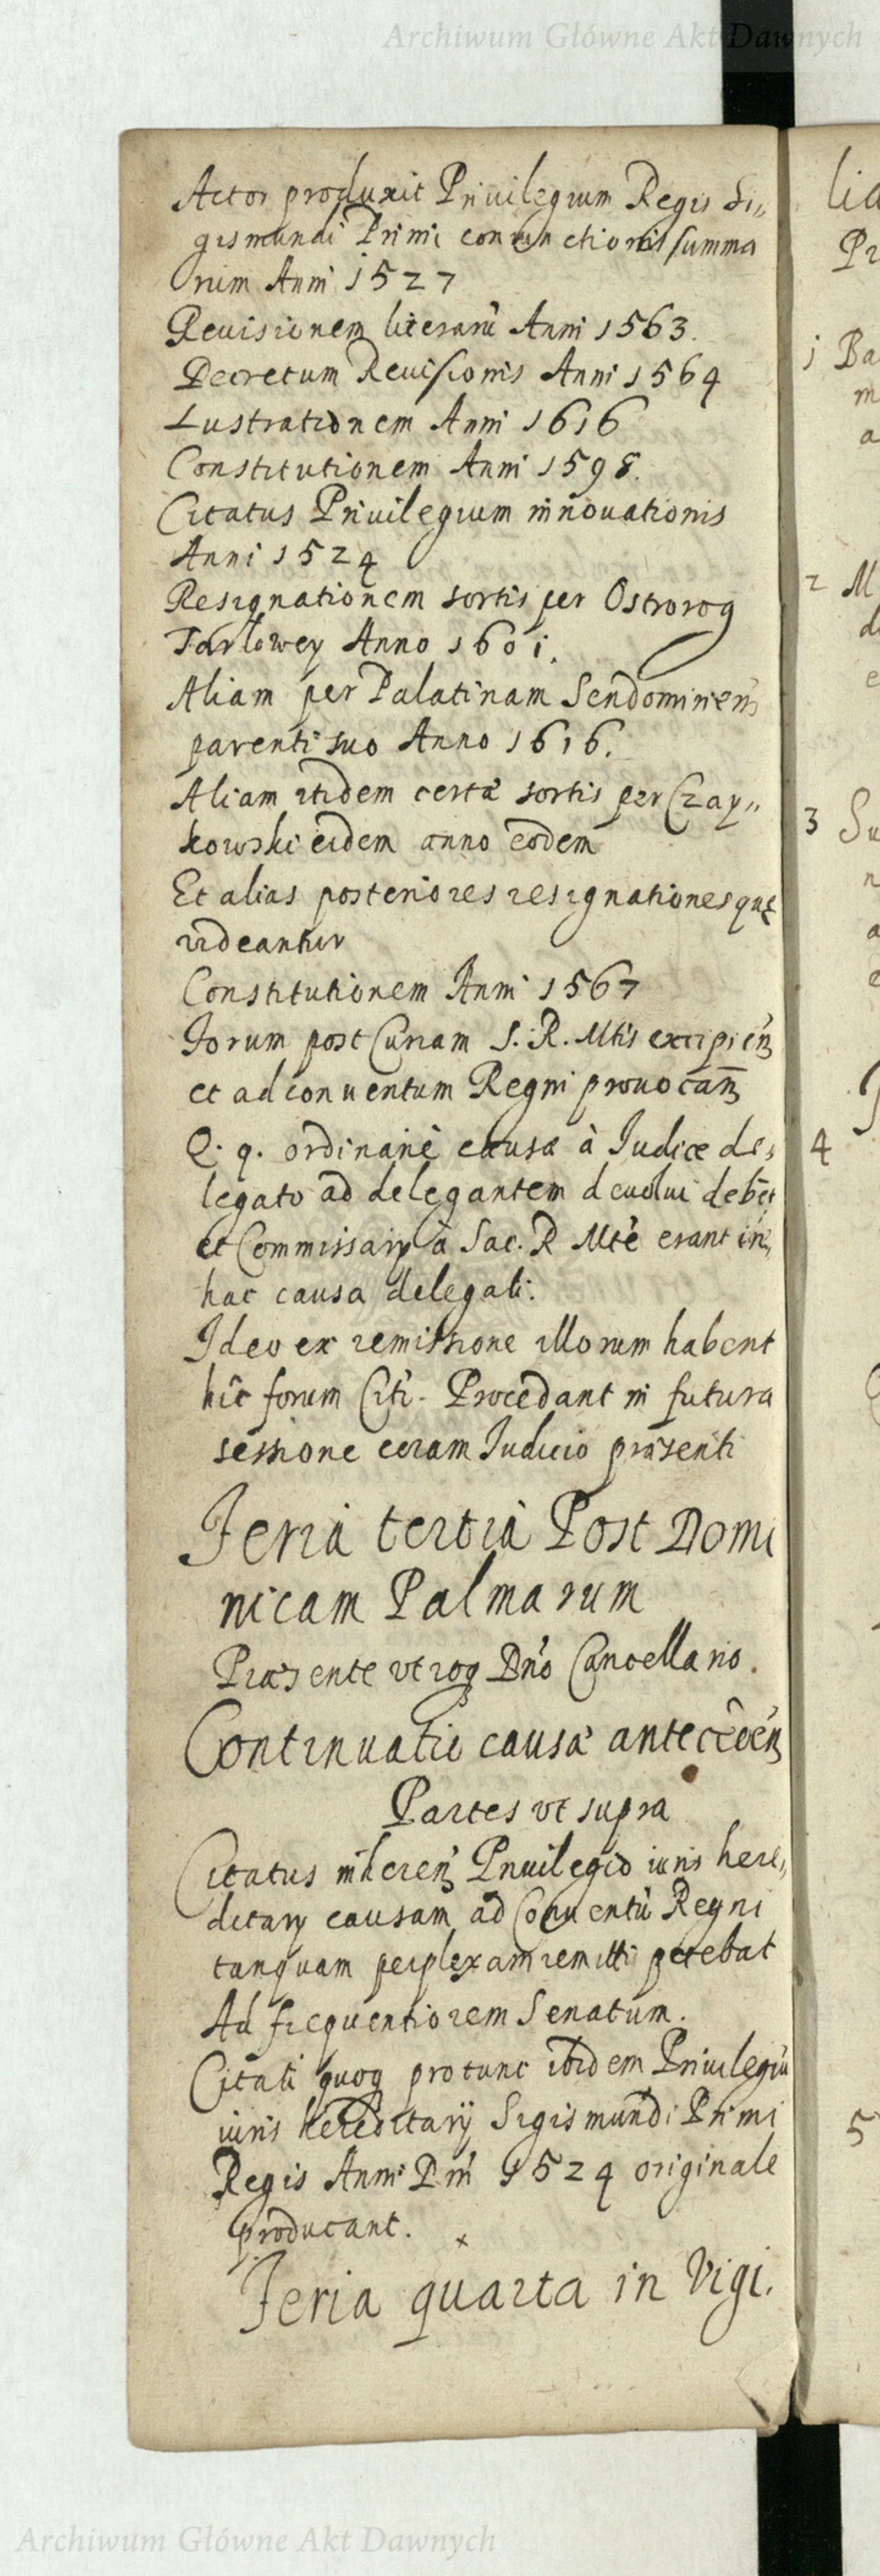 Archiwum Główne Akt Dawnych
Actor produxit Priuilegium Regis Si„
gismundi Primi coniunctionis summa
rum Anni 1527
Reuisionem literarū Anni 1563.
Decretum Reuisionis Anni 1564
Lustrationem Anni 1616
Constitutionem Anni 1598.
Citatus Priuilegium innouationis
Anni 1524
Resignationem sortis per Ostrorog
Tarlowey Anno 1601.
Aliam per Palatinam Sendomirien̄
parenti suo Anno 1616.
Aliam itidem certæ sortis per Czay„
kowski eidem anno eodem
Et alias posteriores resignationes quę
videantur
Constitutionem Anni 1567
Forum post Curiam S. R. Mtis excipien̄
et ad conuentum Regni prouocan̄
Q. q. ordinariè causa à Iudice de„
legato ad delegantem deuolui debet
et Commissarÿ à Sac. R Mte erant in
hac causa delegati.
Ideo ex remissione illorum habent
hic forum Citi. Procedant in futura
sessione coram Iudicio præsenti
Feria tertia Post Domi
nicam Palmarum
Præsente vtroq Dn̄o Cancellario.
Continuatio causæ anteceden̄
Partes vt supra
Citatus inheren̄ Priuilegio iuris here„
ditarÿ causam ad Conuentū Regni
tanquam perplexam remitti petebat
Ad frequentiorem Senatum.
Citati quoq protunc ibidem Priuilegiū
iuris hereditarÿ Sigismundi Primi
Regis Anni Dn̄i 1524 originale
producant. x
Feria quarta in Vigi.
lia
Pr
1 Ba
m
a
2 M
d
e
3 Su
n
a
e
4
5
Archiwum Główne Akt Dawnych